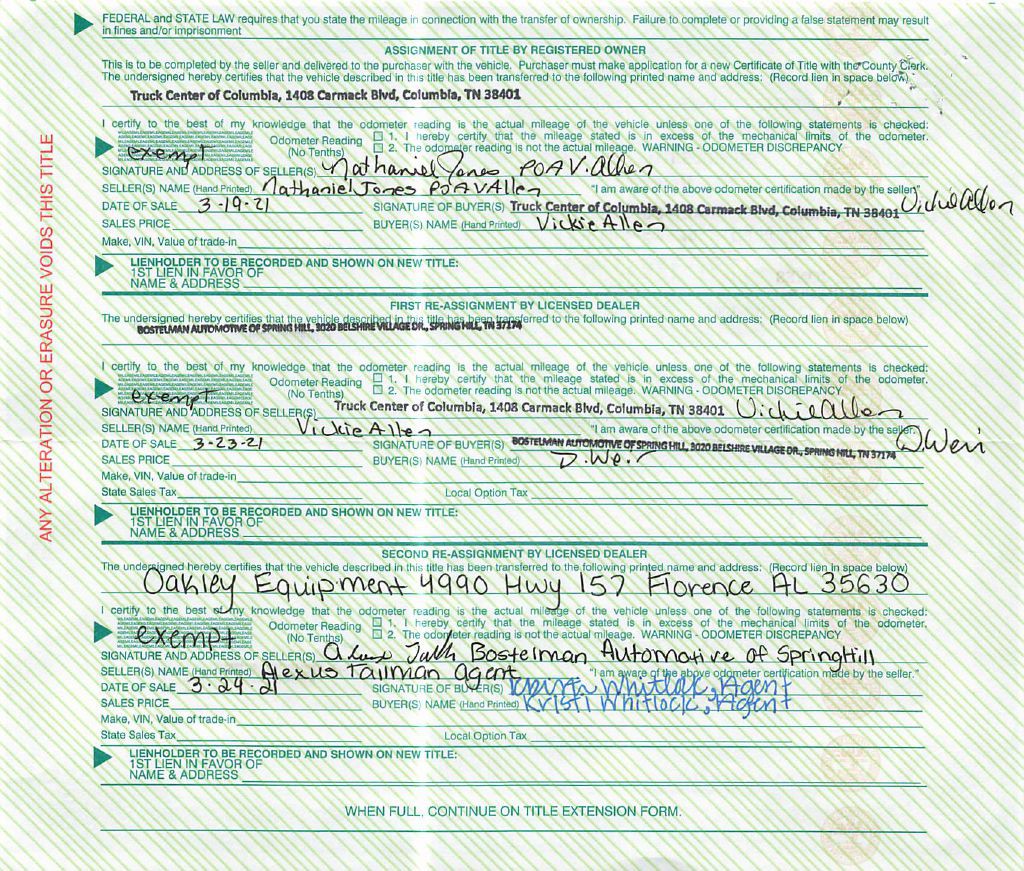 FEDERAL and STATE LAW requires that you state the mileage in connection with the transfer of ownership. Failure to complete or providing a false statement may result
in fines and/or imprisonment
ASSIGNMENT OF TITLE BY REGISTERED OWNER
This is to be completed by the seller and delivered to the purchaser with the vehicle. Purchaser must make application for a new Certificate of Title with the County Clerk.
The undersigned hereby certifies that the vehicle described in this title has been transferred to the following printed name and address: (Record lien in space below)
Truck Center of Columbia, 1408 Carmack Blvd, Columbia, TN 38401
I certify to the best of my knowledge that the odometer reading is the actual mileage of the vehicle unless one of the following statements is checked:
exempt Odometer Reading 1. I hereby certify that the mileage stated is in excess of the mechanical limits of the odometer.
(No Tenths) 2. The odometer reading is not the actual mileage. WARNING - ODOMETER DISCREPANCY
SIGNATURE AND ADDRESS OF SELLER(S) Nathaniel Jones POA V. Allen
SELLER(S) NAME (Hand Printed) Nathaniel Jones POA V Allen "I am aware of the above odometer certification made by the seller."
DATE OF SALE 3-19-21 SIGNATURE OF BUYER(S) Truck Center of Columbia, 1408 Carmack Blvd, Columbia, TN 38401 Vickie Allen
SALES PRICE BUYER(S) NAME (Hand Printed) Vickie Allen
Make, VIN, Value of trade-in
LIENHOLDER TO BE RECORDED AND SHOWN ON NEW TITLE:
1ST LIEN IN FAVOR OF
NAME & ADDRESS
FIRST RE-ASSIGNMENT BY LICENSED DEALER
The undersigned hereby certifies that the vehicle described in this title has been transferred to the following printed name and address: (Record lien in space below)
BOSTELMAN AUTOMOTIVE OF SPRING HILL, 3020 BELSHIRE VILLAGE DR., SPRING HILL, TN 37174
I certify to the best of my knowledge that the odometer reading is the actual mileage of the vehicle unless one of the following statements is checked:
exempt Odometer Reading 1. I hereby certify that the mileage stated is in excess of the mechanical limits of the odometer.
(No Tenths) 2. The odometer reading is not the actual mileage. WARNING - ODOMETER DISCREPANCY
SIGNATURE AND ADDRESS OF SELLER(S) Truck Center of Columbia, 1408 Carmack Blvd, Columbia, TN 38401 Vickie Allen
SELLER(S) NAME (Hand Printed) Vickie Allen "I am aware of the above odometer certification made by the seller."
DATE OF SALE 3-23-21 SIGNATURE OF BUYER(S) BOSTELMAN AUTOMOTIVE OF SPRING HILL, 3020 BELSHIRE VILLAGE DR., SPRING HILL, TN 37174 D. Weir
SALES PRICE BUYER(S) NAME (Hand Printed) D. Weir
Make, VIN, Value of trade-in
State Sales Tax Local Option Tax
LIENHOLDER TO BE RECORDED AND SHOWN ON NEW TITLE:
1ST LIEN IN FAVOR OF
NAME & ADDRESS
SECOND RE-ASSIGNMENT BY LICENSED DEALER
The undersigned hereby certifies that the vehicle described in this title has been transferred to the following printed name and address: (Record lien in space below)
Oakley Equipment 4990 Hwy 157 Florence AL 35630
I certify to the best of my knowledge that the odometer reading is the actual mileage of the vehicle unless one of the following statements is checked:
exempt Odometer Reading 1. I hereby certify that the mileage stated is in excess of the mechanical limits of the odometer.
(No Tenths) 2. The odometer reading is not the actual mileage. WARNING - ODOMETER DISCREPANCY
SIGNATURE AND ADDRESS OF SELLER(S) Bostelman Automotive of SpringHill
SELLER(S) NAME (Hand Printed) Alexus Tallman agent "I am aware of the above odometer certification made by the seller."
DATE OF SALE 3-24-21 SIGNATURE OF BUYER(S) Kristi Whitlock, Agent
SALES PRICE BUYER(S) NAME (Hand Printed) Kristi Whitlock, Agent
Make, VIN, Value of trade-in
State Sales Tax Local Option Tax
LIENHOLDER TO BE RECORDED AND SHOWN ON NEW TITLE:
1ST LIEN IN FAVOR OF
NAME & ADDRESS
WHEN FULL, CONTINUE ON TITLE EXTENSION FORM.
ANY ALTERATION OR ERASURE VOIDS THIS TITLE